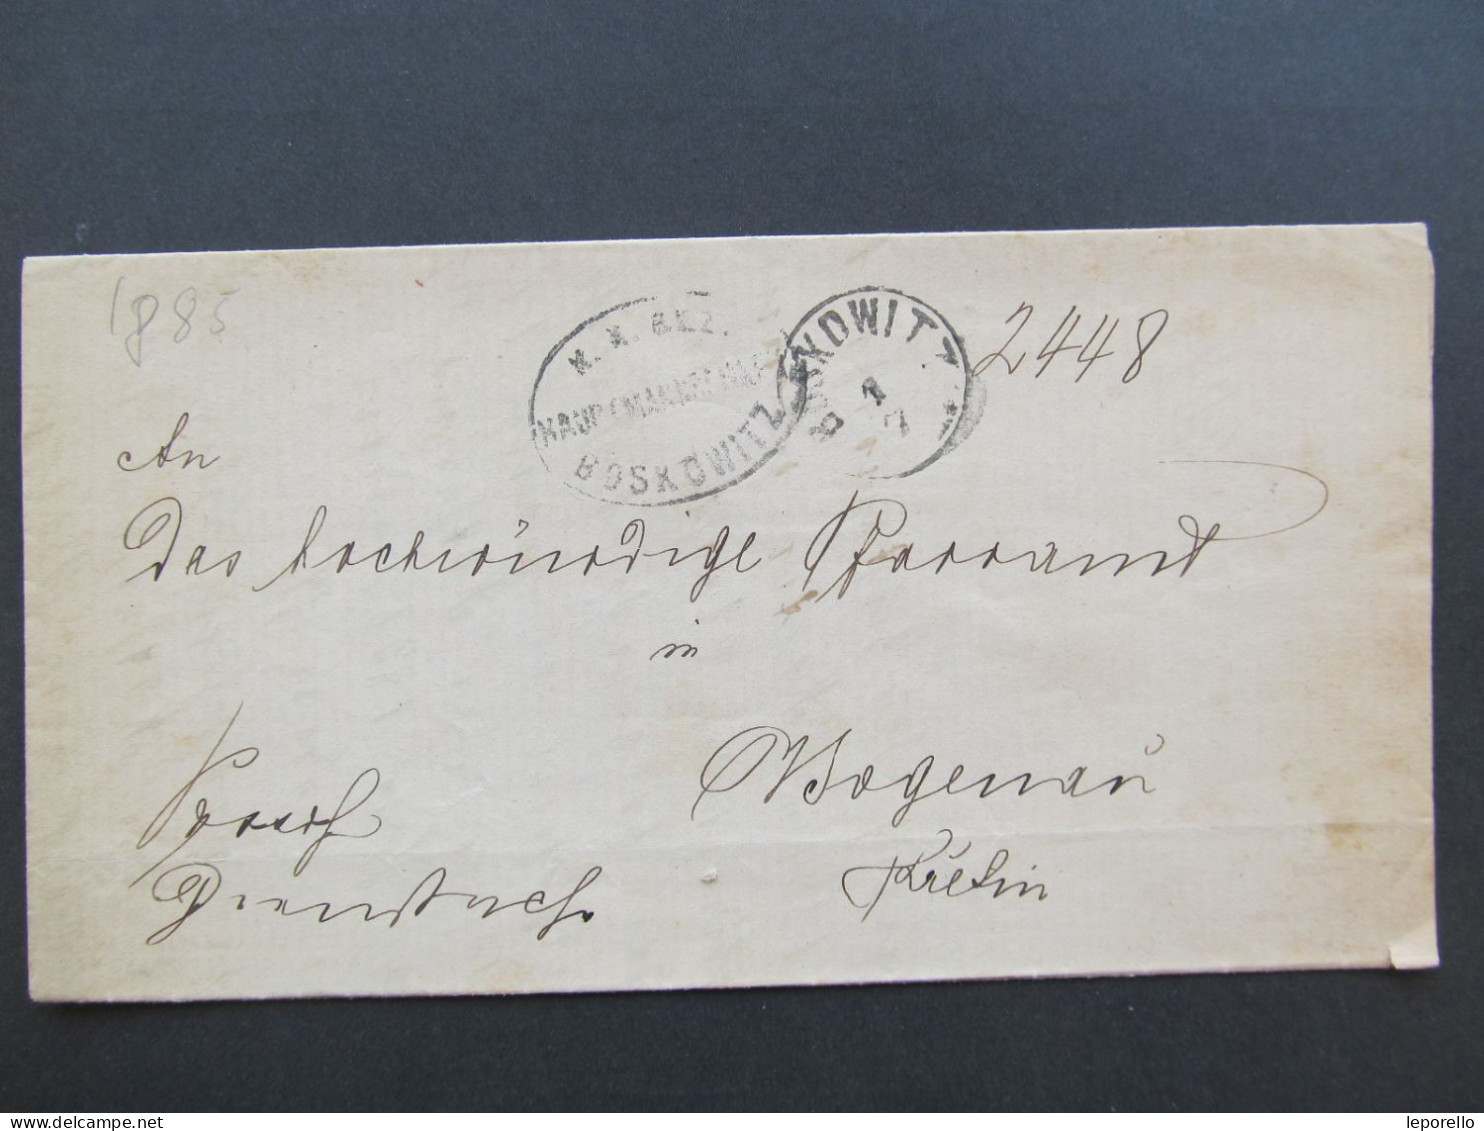 1885
K. K. BEZ.
HAUPTMANNSCHAFT
BOSKOWITZ
BOSKOWITZ
1
7
2448
An
Das hochwürdige Pfarramt
in
Bogenau
Křetin
Dienstsach.
www.delcampe.net
leporello